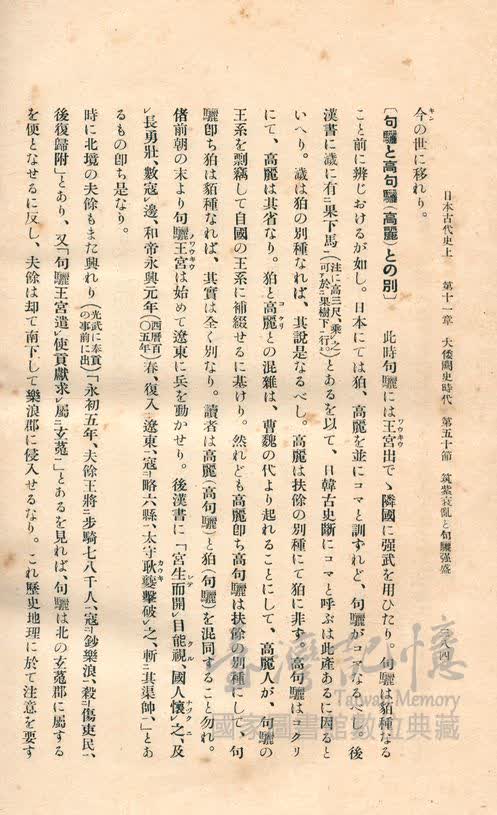 日本古代史上　第十一章　大倭闕史時代　第五十節　筑紫哀亂と句驪强盛　三八四
今の世に移れり。
〔句驪と高句驪(高麗)との別〕　此時句驪には王宮出でゝ隣國に强武を用ひたり。句驪は貊種なる
こと前に辨じおけるが如し。日本にては狛、高麗を並にコマと訓ずれど、句驪がコマなるべし。後
漢書に濊に有㆓果下馬㆒(注に高三尺、乘㆑之可㆘於㆓果樹下㆒行㆖。)とあるを以て、日韓古史斷にコマと呼ぶは此產あるに因ると
いへり。濊は狛の別種なれば、其說是なるべし。高麗は扶餘の別種にて狛に非ず。高句驪はコクリ
にて、高麗は其省なり。狛と高麗との混雜は、曹魏の代より起れることにして、高麗人が、句驪の
王系を剽竊して自國の王系に補綴せるに基けり。然れども高麗卽ち高句驪は扶餘の別種にして、句
驪卽ち狛は貊種なれば、其實は全く別なり。讀者は高麗(高句驪)と狛(句驪)を混同すること勿れ。
偖前朝の末より句驪王宮は始めて遼東に兵を動かせり。後漢書に「宮生而開㆑目能視、國人懷㆑之、及
㆑長勇壯、數寇㆑邊、和帝永興元年(西曆百〇五年)春、復入㆓遼東㆒、寇㆓略六縣㆒、太守耿夔擊㆓破㆑之、斬㆓其渠帥㆒、」とあ
るもの卽ち是なり。
時に北境の夫餘もまた興れり(光武に奉貢の事前に出)「永初五年、夫餘王將㆓步騎七八千人㆒、寇㆓鈔樂浪㆒、殺㆓傷吏民㆒、
後復歸附」とあり、又「句驪王宮遣㆑使貢獻求㆑屬㆓玄菟㆒」とあるを見れば、句驪は北の玄菟郡に屬する
を便となせるに反し、夫餘は却て南下して樂浪郡に侵入せるなり。これ歷史地理に於て注意を要す
臺灣記憶
Taiwan Memory
國家圖書館數位典藏